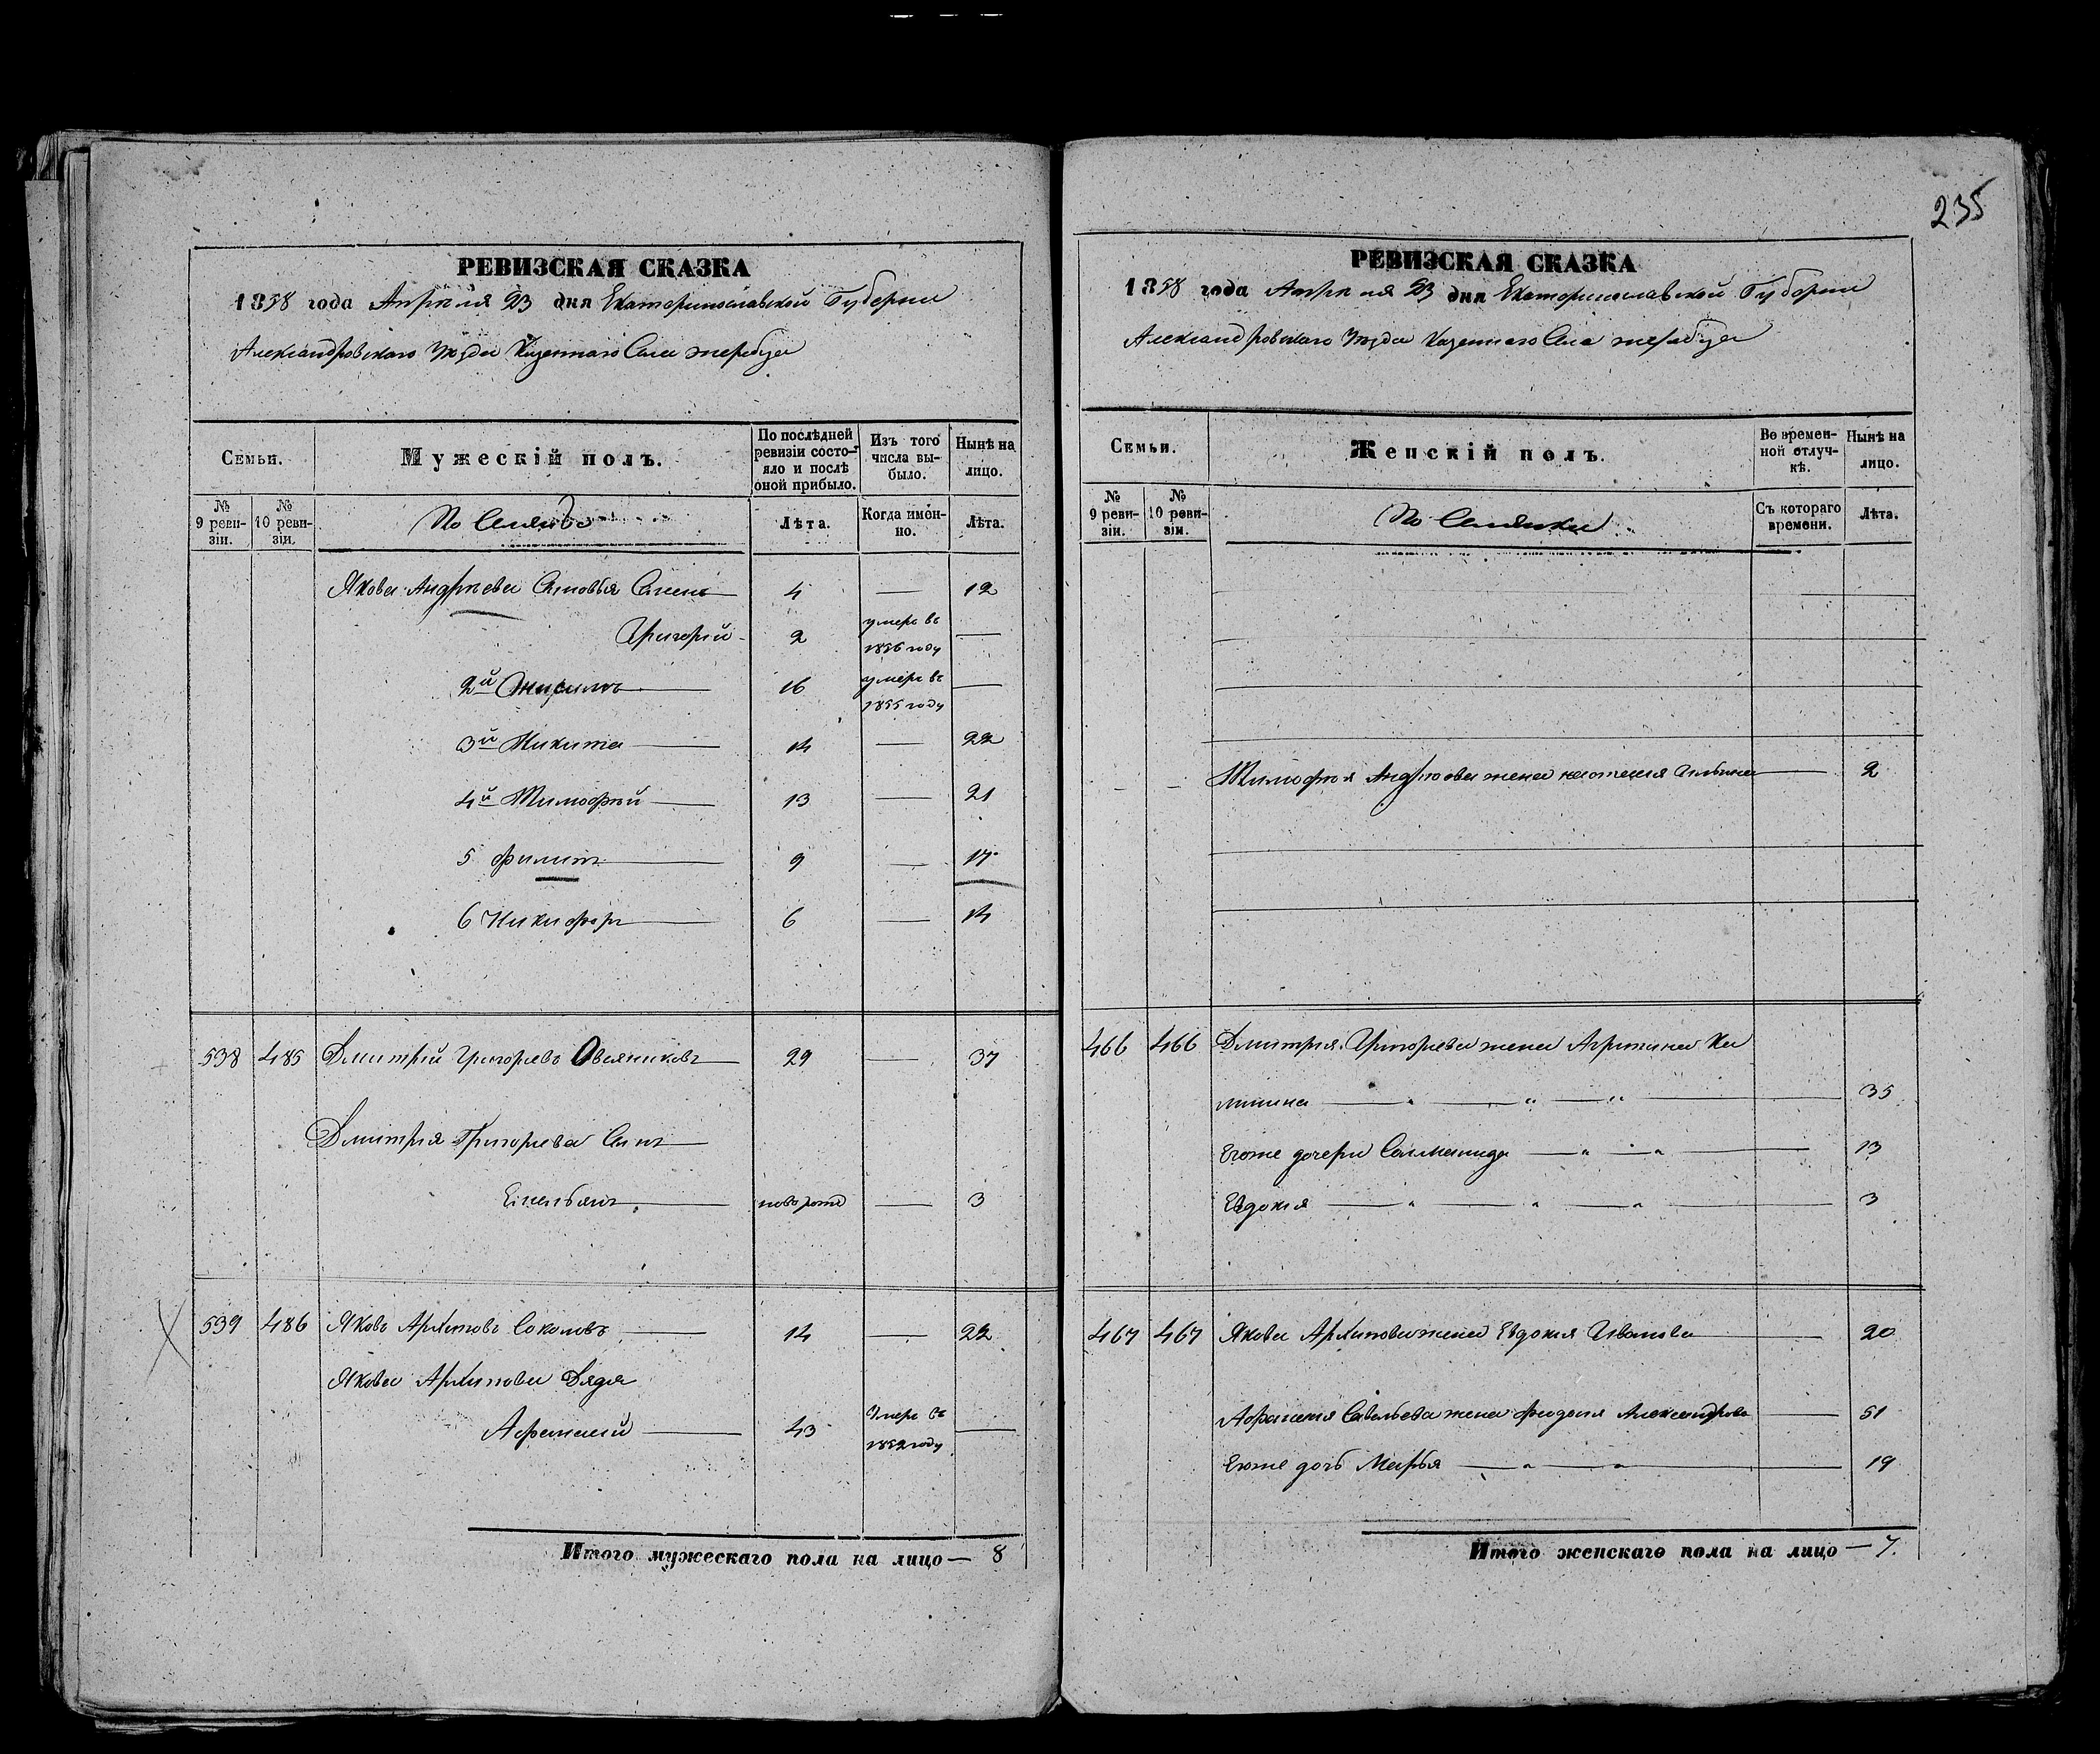 235
РЕВИЗСКАЯ СКАЗКА
1858 года Апрѣля 23 дня Екатеринославской Губерніи
Александровскаго Уѣзда Казеннаго Села Жеребца
Семьи.
Мужескій полъ.
По послѣдней ревизіи состояло и послѣ оной прибыло.
Изъ того числа выбыло.
Нынѣ на лицо.
№ 9 ревизіи.
№ 10 ревизіи.
Лѣта.
Когда именно.
Лѣта.
Якова Андреева Сыновья 4 — 12
Григорій 2 умеръ въ 1856 году —
2й 16 умеръ въ 1855 году —
3й Никита 14 — 22
4й Тимофѣй 13 — 21
5 Филипъ 9 — 17
6 Никифоръ 6 — 14
538 485 Дмитрій Григорьевъ Овсяниковъ 29 — 37
Дмитрія Григорьева Сынъ
новорожд — 3
539 486 Яковъ Архиповъ Соколовъ 14 — 22
Якова Архипова Дядя
Афанасій 43 Умеръ въ 1852 году —
Итого мужескаго пола на лицо — 8
РЕВИЗСКАЯ СКАЗКА
1858 года Апрѣля 23 дня Екатеринославской Губерніи
Александровскаго Уѣзда Казеннаго Села Жеребца
Семьи.
Женскій полъ.
Во временной отлучкѣ.
Нынѣ на лицо.
№ 9 ревизіи.
№ 10 ревизіи.
Съ котораго времени.
Лѣта.
Тимофея жена 2
466 466 Дмитрія Григорьева жена Агрипина Ка
линина 35
Егоже дочери Соломонида 13
Евдокія 3
467 467 Якова Архипова жена Евдокія Иванова 20
Афанасія Савельева жена Федосія Александрова 51
Егоже дочь Марья 19
Итого женскаго пола на лицо — 7.